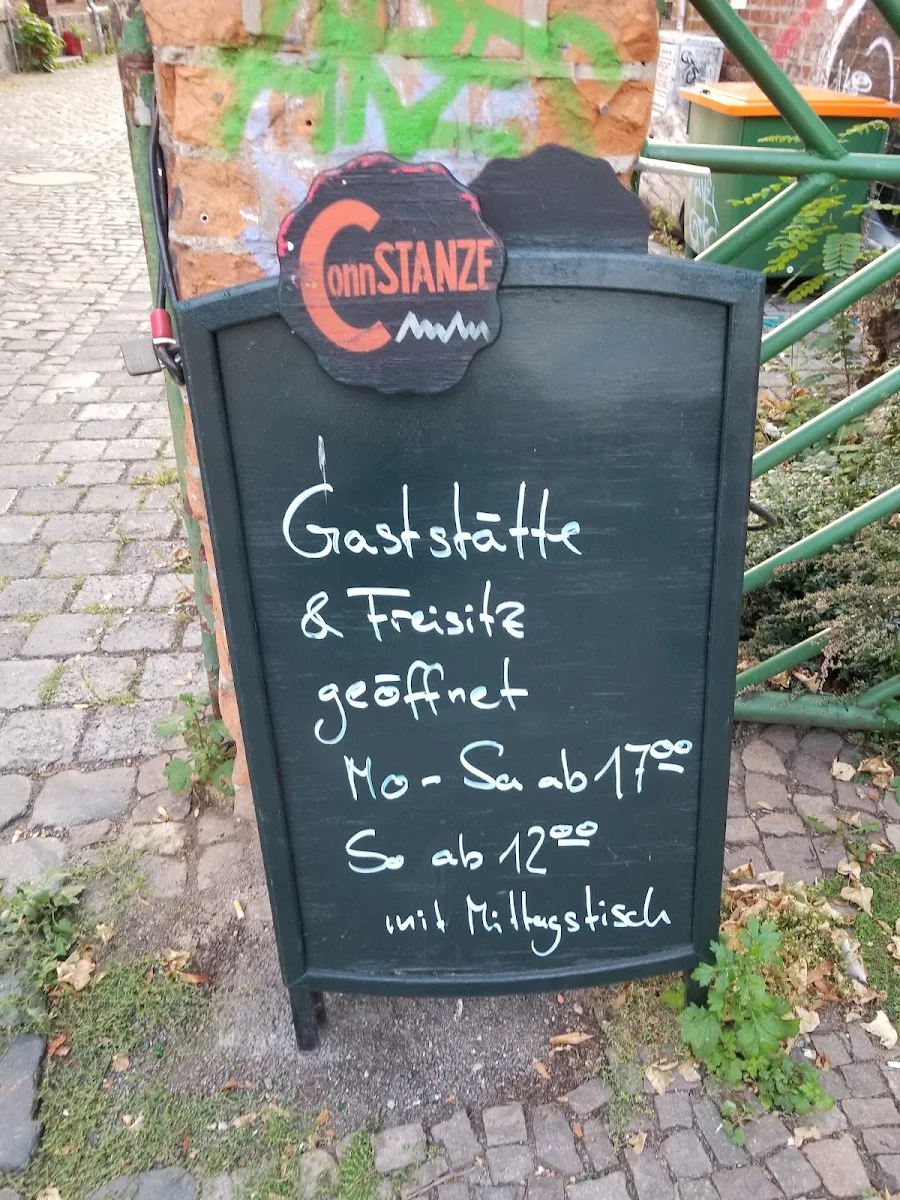 ConnSTANZE
Gaststätte
& Freisitz
geöffnet
Mo - Sa ab 17⁰⁰
So ab 12⁰⁰
mit Mittagstisch